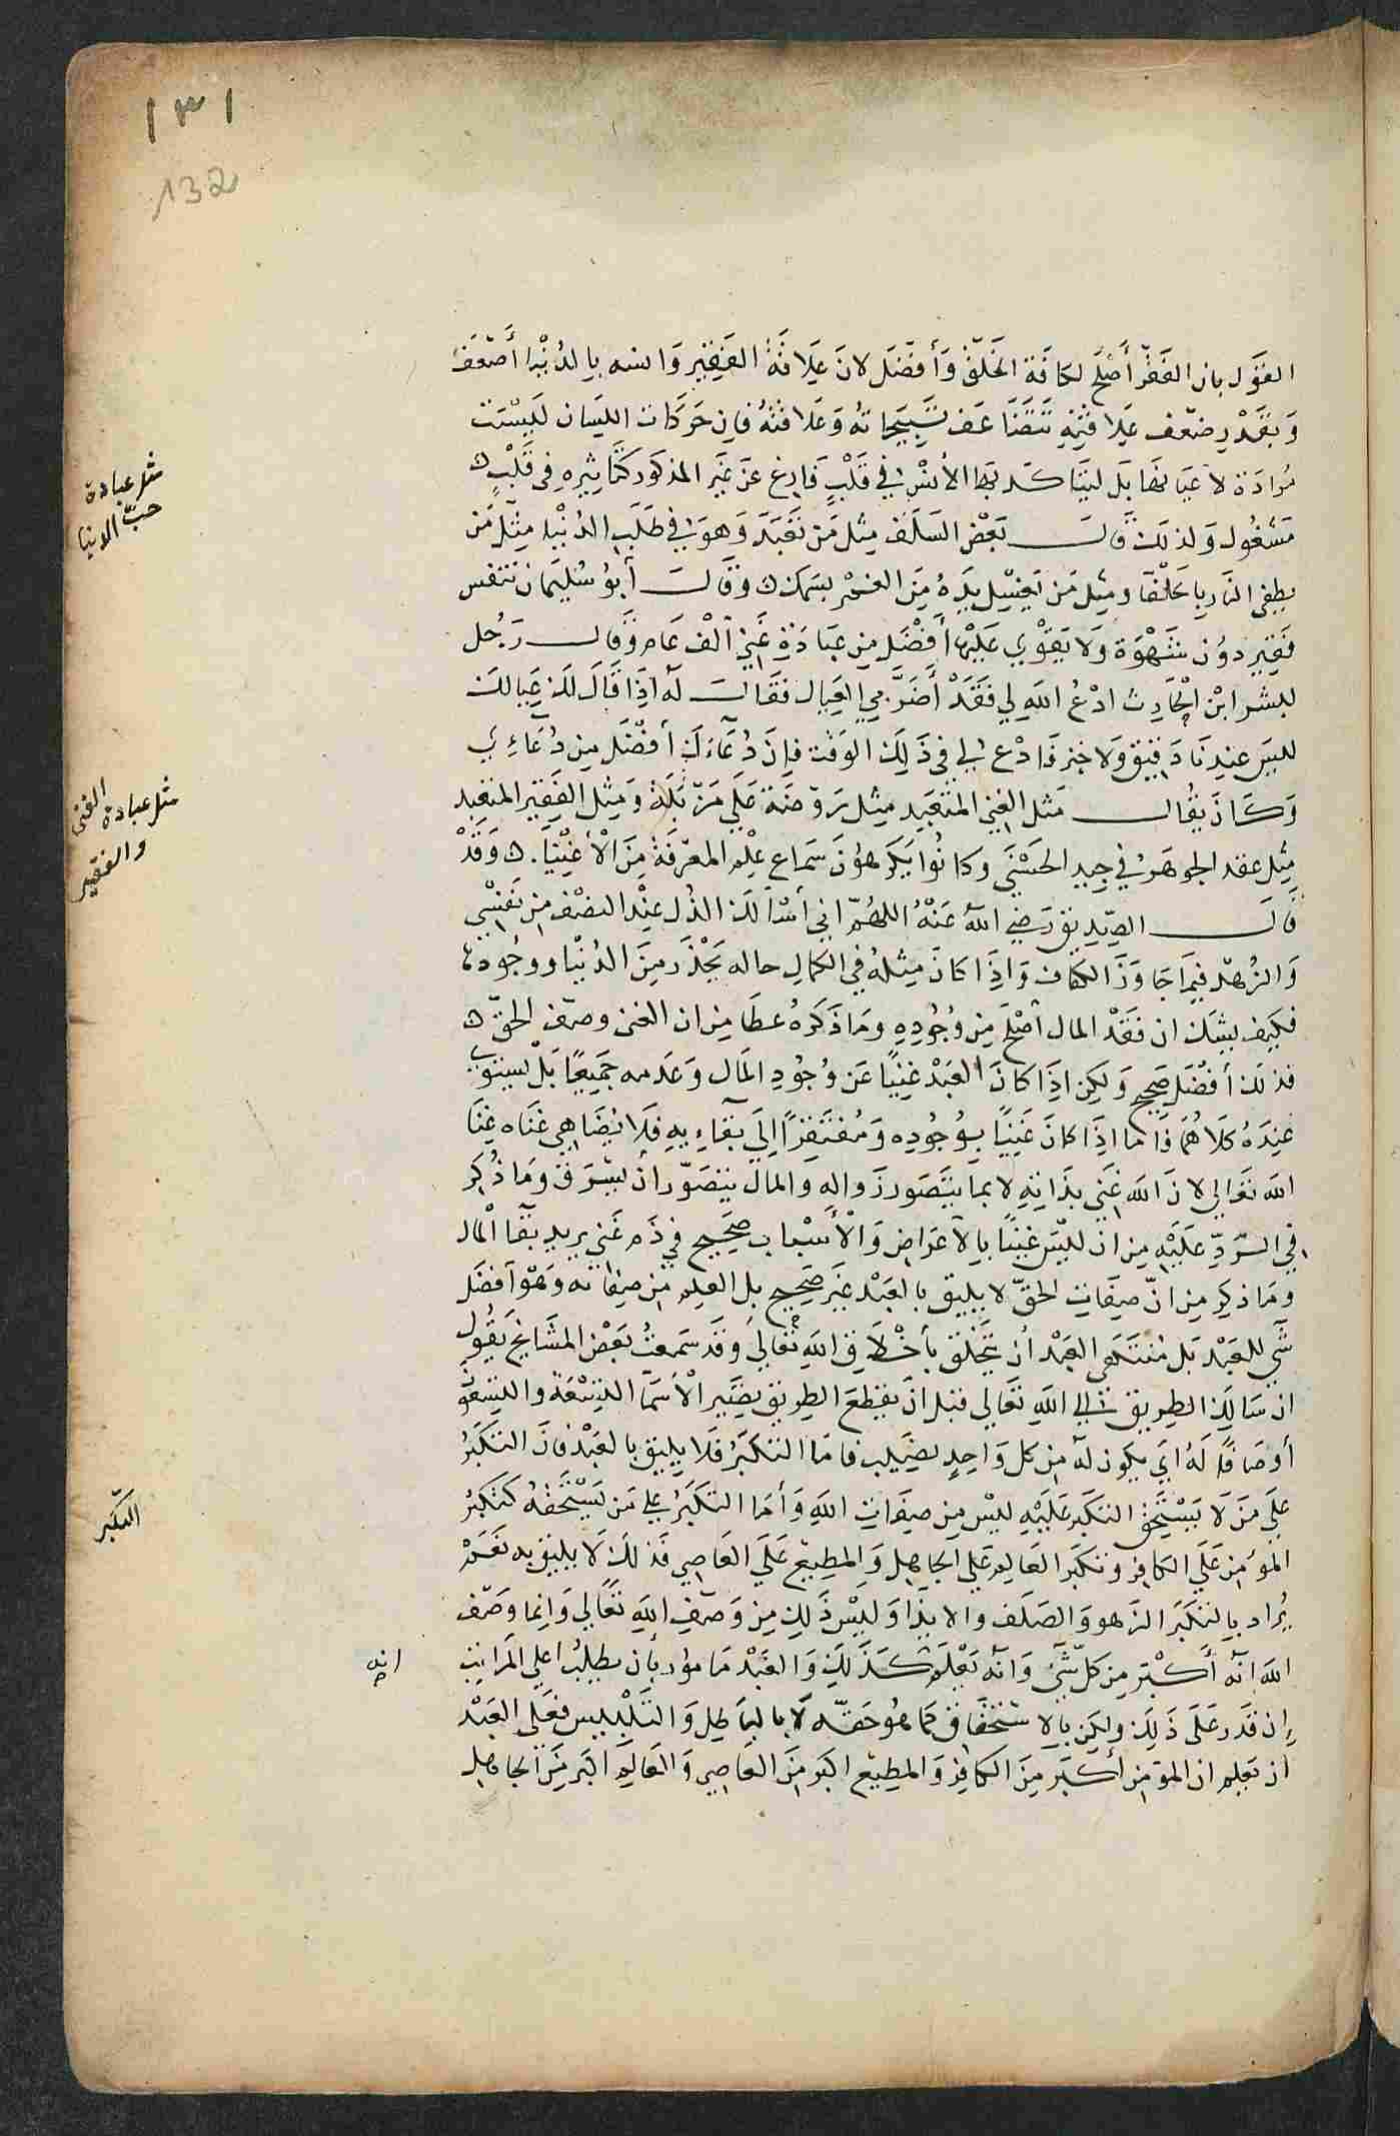 ١٣١
132
القول بان الفقر أصلح لكافة الخلق وأفضل لان علاقة الفقير وانسه بالدنيا أضعف
وبقدر ضعف علاقته تتضاعف تسبيحاته وعلاقته فان حركات اللسان ليست
مرادة لاعيانها بل ليتاكد بها الأنس في قلب فارغ عن غير المذكور كتاثيره في قلب
مشغول ولذلك قال بعض السلف مثل من تعبد وهو في طلب الدنيا مثل من
يطفي النار بالحلفا ومثل من يغسل يده من الغمر بسمك وقال أبو سليمان تنفس
فقير دون شهوة ولا يقوي عليها أفضل من عبادة غني ألف عام وقال رجل
للبشر ابن الحارث ادع الله لي فقد أضر بي العيال فقال له اذا قال لك عيالك
لليس عندنا دقيق ولا خبز فادع لي في ذلك الوقت فان دعاءك أفضل من دعاءي
وكان يقال مثل الغني المتعبد مثل روضة علي مزبلة ومثل الفقير المتعبد
مثل عقد الجوهر في جيد الحسني وكانوا يكرهون سماع علم المعرفة من الأغنيا. وقد
قال الصديق رضي الله عنه اللهم اني أسألك الذل عند النصف من نفسي
والزهد فيما جاوز الكفاف واذا كان مثله في الكمال حاله يحذر من الدنيا ووجودها
فكيف يشك ان فقد المال أصلح من وجوده وما ذكره عطا من ان الغنى وصف الحق
فذلك أفضل صحيح ولكن اذا كان العبد غنيا عن وجود المال وعدمه جميعا بل يستوي
عنده كلاهما فاما اذا كان غنيا بوجوده ومفتقرا إلى بقاءيه فلا يضاهي غناه غنا
الله تعالى لان الله غني بذاته لا بما يتصور زواله والمال يتصور أن يسرق وما ذكر
في الرد عليه من ان لليس غنيا بالاعراض والأسباب صحيح في ذم غني يريد بقا المال
وما ذكر من ان صفات الحق لا يليق بالعبد غير صحيح بل العلم من صفاته وهو أفضل
شي للعبد بل منتهى العبد أن يتخلق بأخلاق الله تعالى وقد سمعت بعض المشايخ يقول
ان سالك الطريق الي الله تعالى قبل ان يقطع الطريق يصير الأسما التسعة والتسعون
أوصافا له اي يكون له من كل واحد نصيب فاما التكبر فلا يليق بالعبد فان التكبر
على من لا يستحق التكبر عليه ليس من صفات الله وأما التكبر علي من يستحقه كتكبر
المؤمن على الكافر وتكبر العالم على الجاهل والمطيع على العاصي فذلك لا يليق به نعم
يراد بالتكبر الزهو والصلف والايذا وليس ذلك من وصف الله تعالي وانما وصف
الله انه أكبر من كل شي وانه يعلم كذلك والعبد مامور بأن يطلب اعلى المراتب
إن قدر على ذلك ولكن بالاستحقاق كما هو حقه لا بالباطل والتلبيس فعلى العبد
ان يعلم ان المؤمن أكبر من الكافر والمطيع اكبر من العاصي والعالم اكبر من الجاهل
مثل عبادة
حب الدنيا
مثل عبادة الغنى
والفقير
التكبر